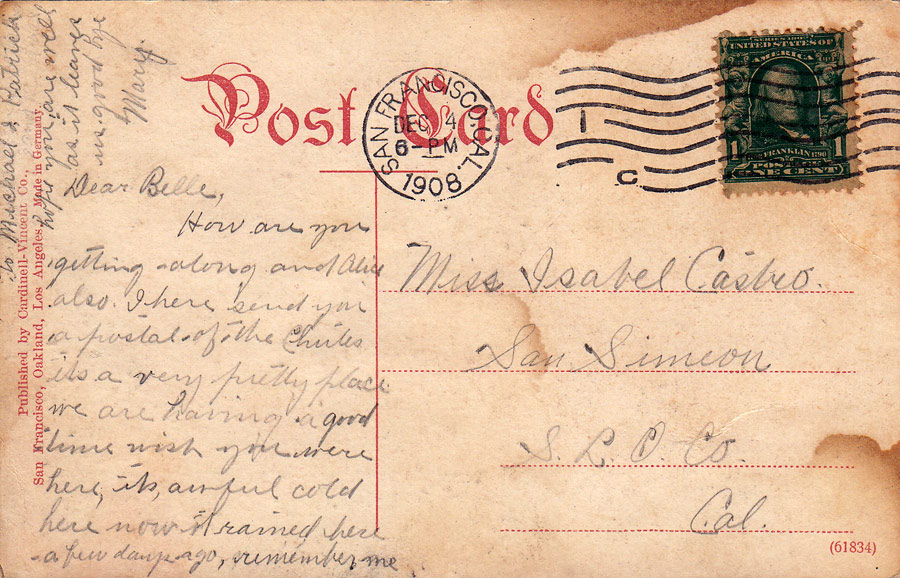 Post Card
SAN FRANCISCO, CAL.
DEC 4
6-PM
1908
1
C
SERIES 1902
UNITED STATES OF
AMERICA
FRANKLIN 1790
1 1
ONE CENT
Dear Belle,
How are you
getting along and Alice
also. I here send you
a postal of the Chutes
its a very pretty place
we are having a good
time wish you were
here, its, awful cold
here now it rained here
a few days ago, remember me
to Michael & Patrick
hope you are well
as it leaves
us good bye
Mary.
Miss Isabel Castro.
San Simeon
S. L. O. Co.
Cal.
Published by Cardinell-Vincent Co.,
San Francisco, Oakland, Los Angeles, Made in Germany.
(61834)